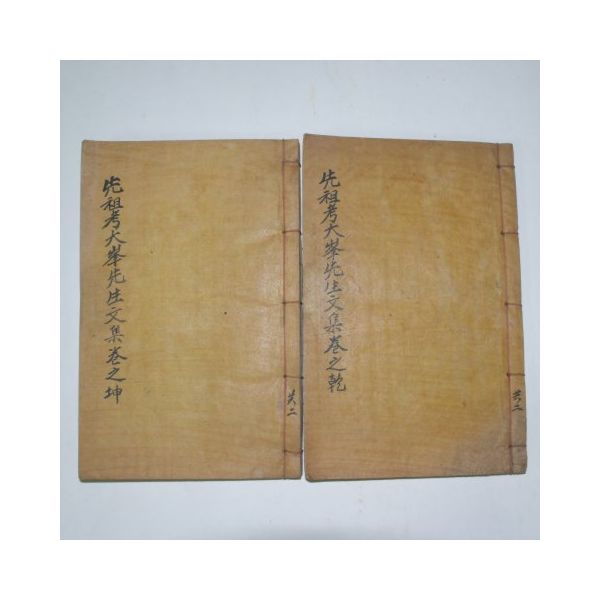 先祖考大峯先生文集卷之乾
共二
先祖考大峯先生文集卷之坤
共二